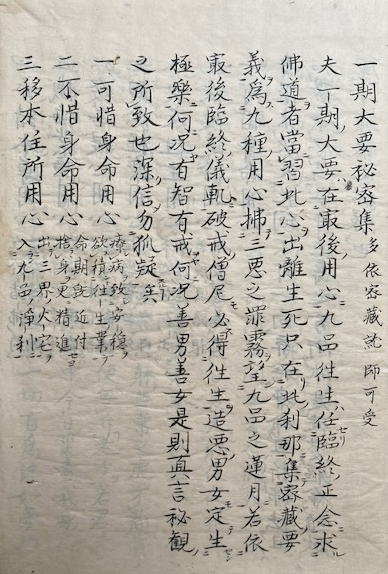 一期大要秘密集 多依密藏記 師可受
夫一期大要在最後用心九品往生任臨終正念求
佛道者當習此心出離生死只在此刹那集密藏要
義爲九種用心拂三悪之罪霧望九品之蓮月若依
最後臨終儀軌破戒僧尼必得往生造悪男女定生
極樂何况有智有戒何况善男善女是則真言秘觀
之所致也深信勿狐疑矣
一可惜身命用心 療病致安穏 欲積往生業
二不惜身命用心 命期既近付 捨身更精進
三移本住所用心 出三界火宅 入九品淨刹